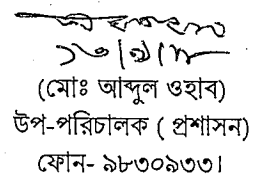 (মোঃ আব্দুল ওহাব)
উপ-পরিচালক ( প্রশাসন)
ফোন- ৯৮৩০৯৩৩।